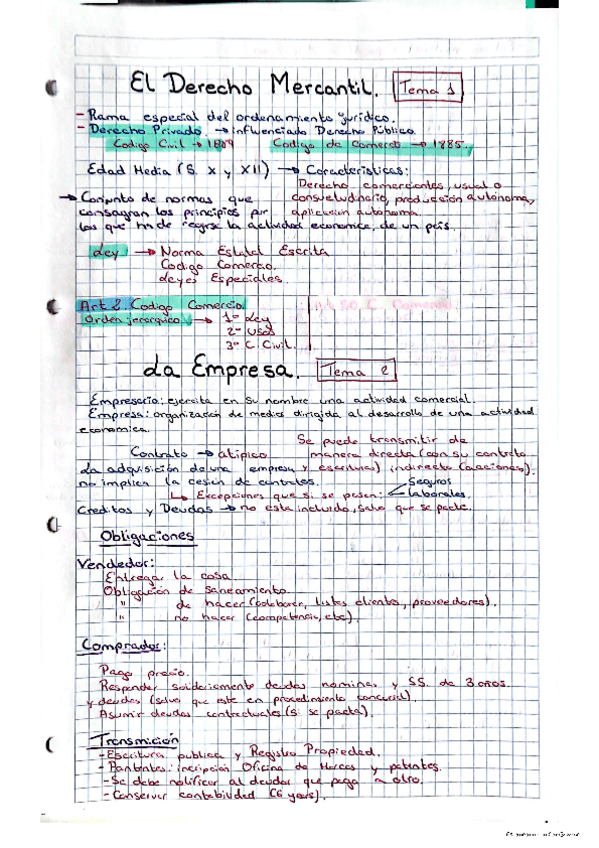 El Derecho Mercantil. Tema 1
- Rama especial del ordenamiento jurídico.
- Derecho Privado. → influenciado Derecho Público.
Codigo Civil → 1889 Codigo de Comercio → 1885.
Edad Media (S. X y XII) → Características:
Derecho comerciantes, usual o
→ Conjunto de normas que consuetudinario, producción autónoma,
consagran los principios por aplicacion autonoma.
los que ha de regirse la actividad economica, de un pais.
Ley → Norma Estatal Escrita
Codigo Comercio.
Leyes Especiales.
Art 2. Codigo Comercio. Art 50 C. Comercio.
Orden jerarquico → 1º Ley
2º Usos
3º C. Civil.
La Empresa. Tema 2
Empresario: ejercita en su nombre una actividad comercial.
Empresa: organización de medios dirigida al desarrollo de una actividad
economica.
Se puede transmitir de
Contrato → atípico manera directa (con su contrato
La adquisición de una empresa y escritura) indirecta (acciones).
no implica la cesion de contratos. Seguros
↳ Excepciones que si se pasan: laborales.
Creditos y Deudas → no esta incluido, salvo que se pacte.
Obligaciones
Vendedor:
Entregar la cosa
Obligación de saneamiento
" de hacer (colaborar, listas clientes, proveedores).
" no hacer (competencia, etc).
Comprador:
Pago precio.
Responder solidariamente deudas nominas y SS. de 3 años
y deudas (salvo que este en procedimiento concursal).
Asumir deudas contractuales (si se pacta).
Transmición
- Escritura publica y Registro Propiedad.
inscipción Oficina de Marcas y patentes.
- Se debe notificar al deudor que paga a otro.
- Conservar contabilidad (6 years).